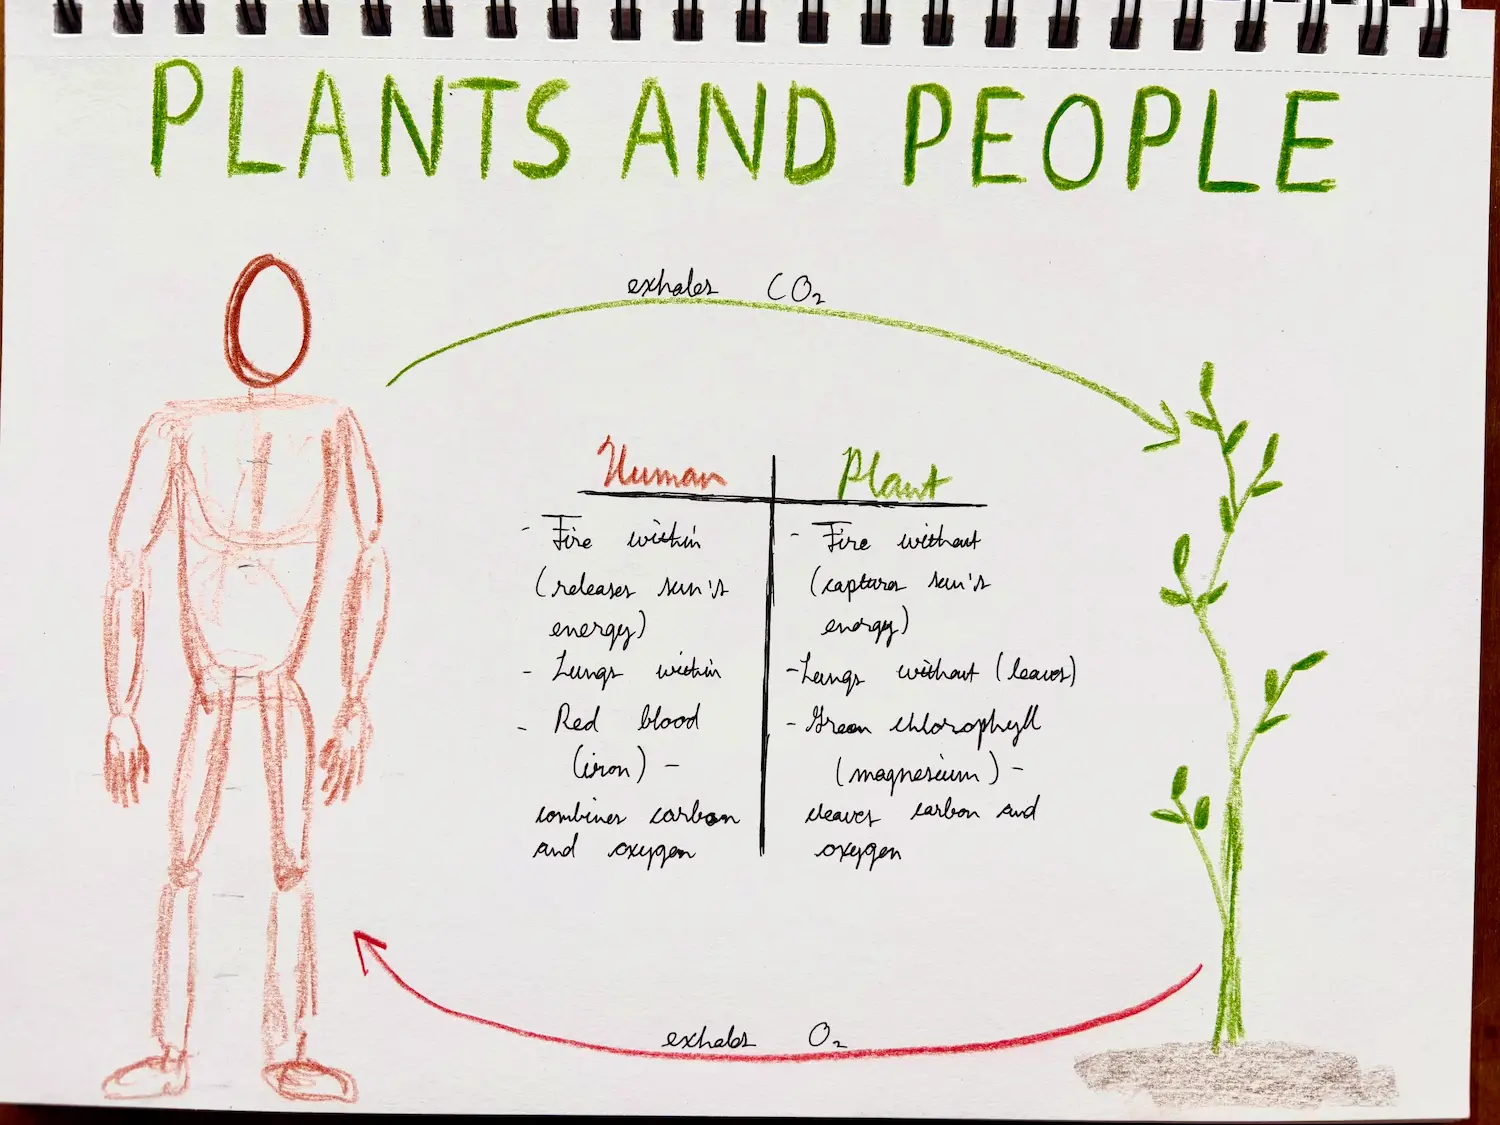 PLANTS AND PEOPLE
exhales CO₂
Human
- Fire within
(releases sun's
energy)
- Lungs within
- Red blood
(iron) -
combines carbon
and oxygen
Plant
- Fire without
(captures sun's
energy)
- Lungs without (leaves)
- Green chlorophyll
(magnesium) -
cleaves carbon and
oxygen
exhales O₂